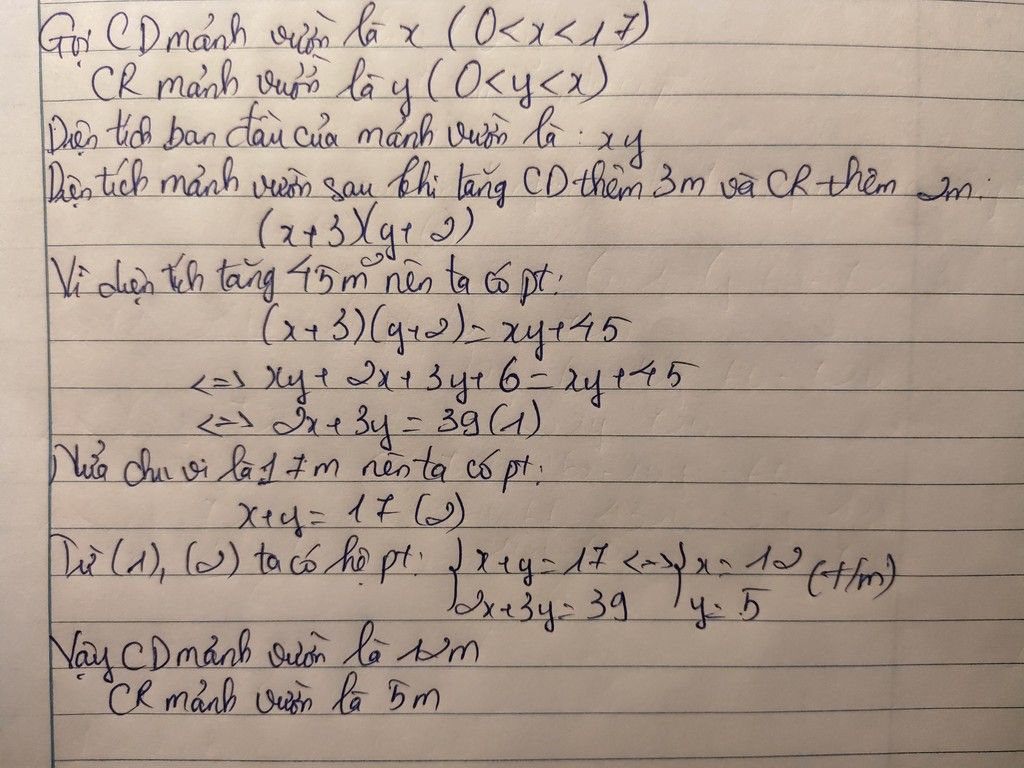 Gọi CD mảnh vườn là x (0<x<17)
CR mảnh vườn là y (0<y<x)
Diện tích ban đầu của mảnh vườn là: xy
Diện tích mảnh vườn sau khi tăng CD thêm 3m và CR thêm 2m:
(x+3)(y+2)
Vì diện tích tăng 45m² nên ta có pt:
(x+3)(y+2)=xy+45
<=> xy+2x+3y+6=xy+45
<=> 2x+3y=39(1)
Nửa chu vi là 17m nên ta có pt:
x+y=17(2)
Từ (1),(2) ta có hệ pt: {x+y=17 <=> {x=12 (t/m)
2x+3y=39 y=5
Vậy CD mảnh vườn là 12m
CR mảnh vườn là 5m